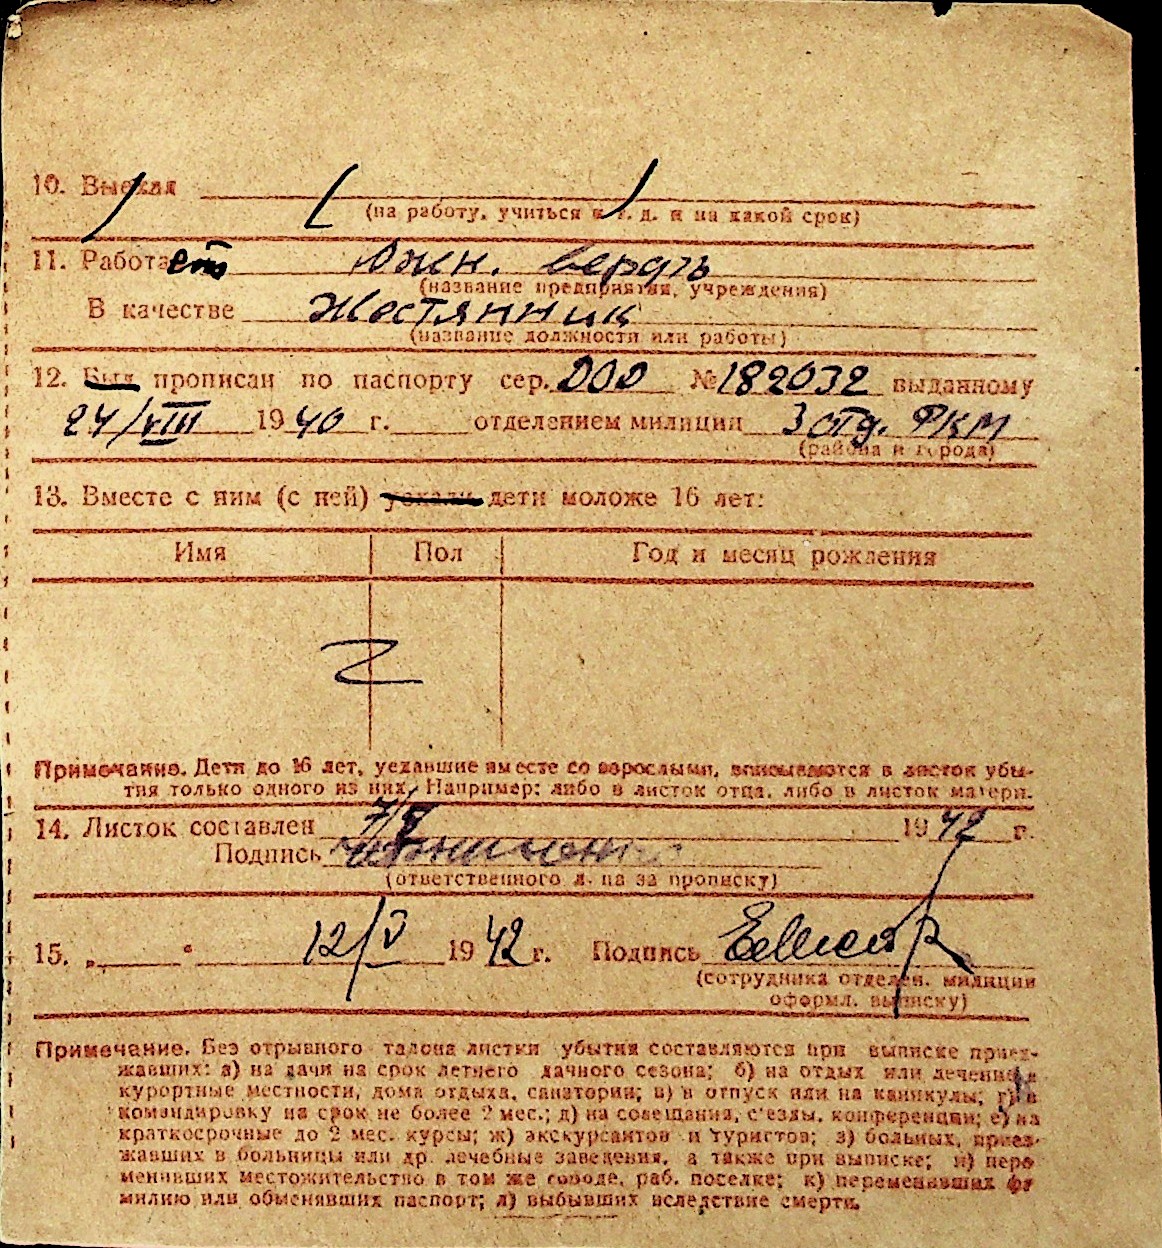 10. Выехал
(на работу, учиться и т. д. и на какой срок)
11. Работает Южн. верфь
(название предприятия, учреждения)
В качестве Жестянник
(название должности или работы)
12. Был прописан по паспорту сер. ДОО № 182032 выданному
24/VIII 1940 г. отделением милиции 3 отд. РКМ
(района и города)
13. Вместе с ним (с ней) уехали дети моложе 16 лет:
Имя Пол Год и месяц рождения
Z
Примечание. Дети до 16 лет, уехавшие вместе со взрослыми, вписываются в листок убы-
тия только одного из них. Например: либо в листок отца, либо в листок матери.
14. Листок составлен 1942 г.
Подпись
(ответственного л. на за прописку)
15. „ “ 12/V 1942 г. Подпись
(сотрудника отделен. милиции
оформл. выписку)
Примечание. Без отрывного талона листки убытия составляются при выписке приез-
жавших: а) на дачи на срок летнего дачного сезона; б) на отдых или лечение в
курортные местности, дома отдыха, санатории; в) в отпуск или на каникулы; г) в
командировку на срок не более 2 мес.; д) на совещания, с'езды, конференции; е) на
краткосрочные до 2 мес. курсы; ж) экскурсантов и туристов; з) больных, приез-
жавших в больницы или др. лечебные заведения, а также при выписке; и) пере
менивших местожительство в том же городе, раб. поселке; к) переменивших фа
милию или обменявших паспорт; л) выбывших вследствие смерти.